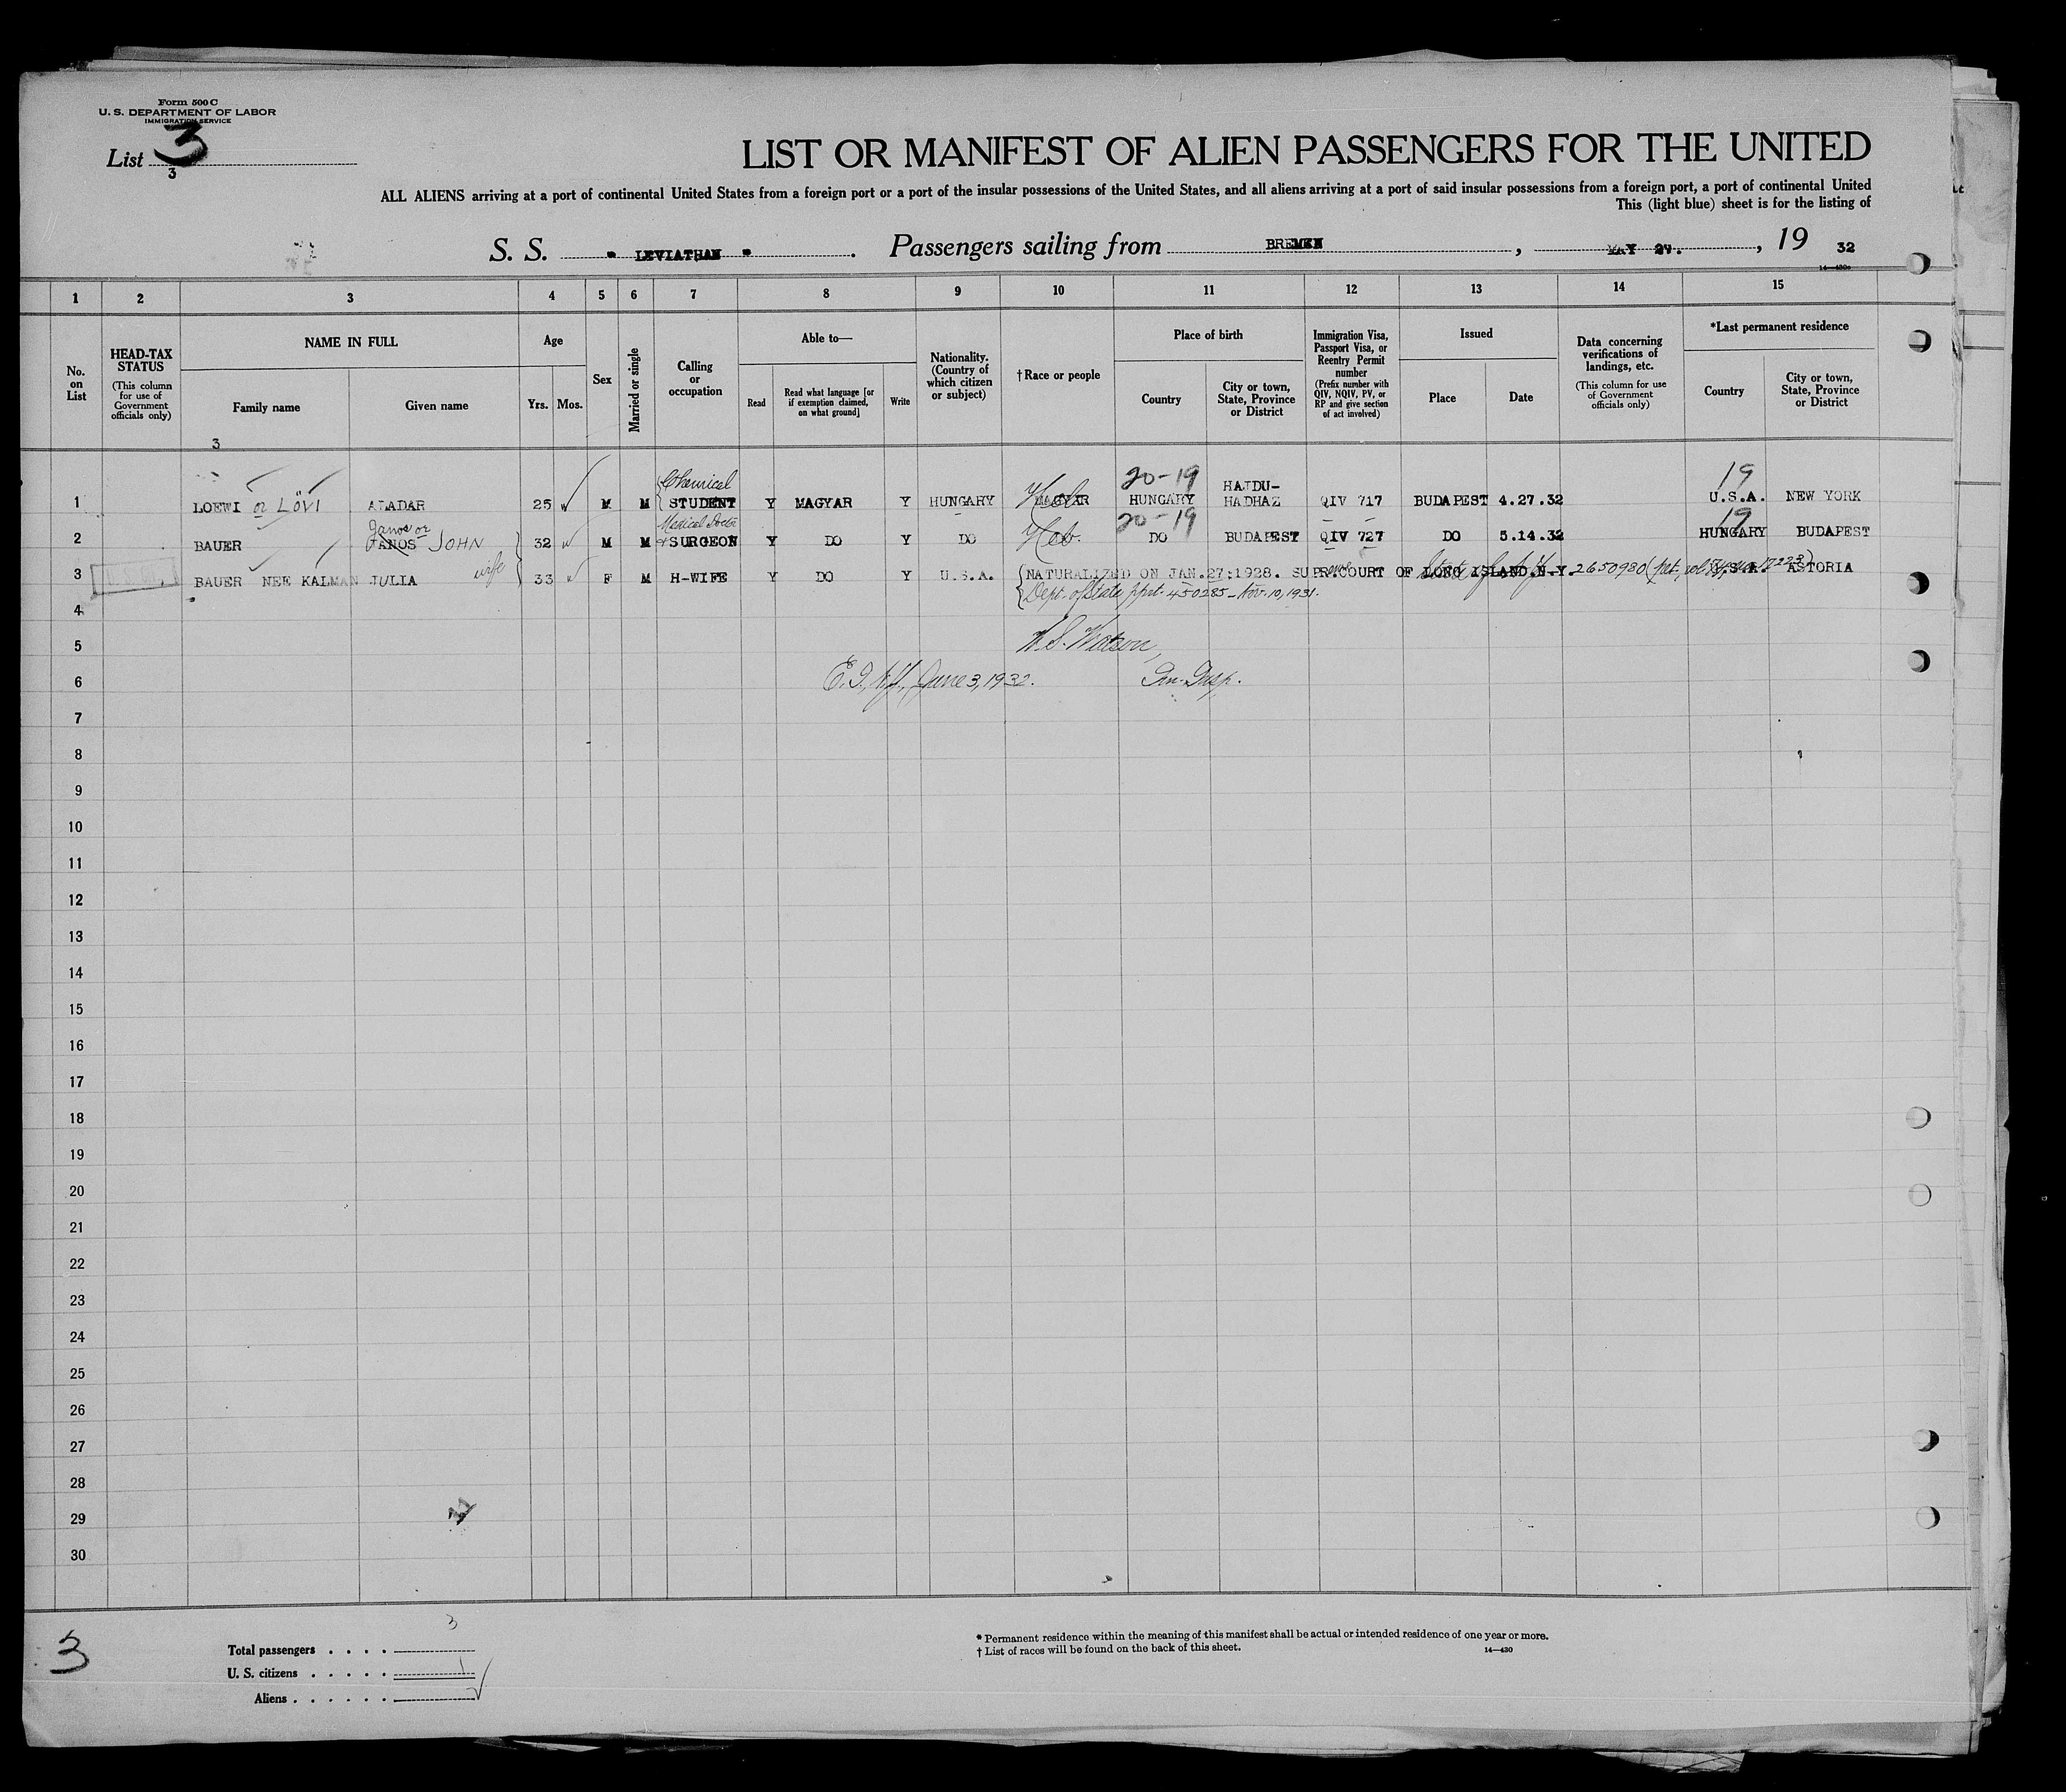 Form 500 C
U. S. DEPARTMENT OF LABOR
IMMIGRATION SERVICE
List 3
3
LIST OR MANIFEST OF ALIEN PASSENGERS FOR THE UNITED
ALL ALIENS arriving at a port of continental United States from a foreign port or a port of the insular possessions of the United States, and all aliens arriving at a port of said insular possessions from a foreign port, a port of continental United
This (light blue) sheet is for the listing of
S. S. " LEVIATHAN " . Passengers sailing from BREMEN , MAY 27. , 19 32
1 2 3 4 5 6 7 8 9 10 11 12 13 14 15
No. on List
HEAD-TAX STATUS (This column for use of Government officials only)
NAME IN FULL
Family name
Given name
Age
Yrs. Mos.
Sex
Married or single
Calling or occupation
Able to—
Read
Read what language [or if exemption claimed, on what ground]
Write
Nationality. (Country of which citizen or subject)
†Race or people
Place of birth
Country
City or town, State, Province or District
Immigration Visa, Passport Visa, or Reentry Permit number (Prefix number with QIV, NQIV, PV, or RP and give section of act involved)
Issued
Place
Date
Data concerning verifications of landings, etc. (This column for use of Government officials only)
*Last permanent residence
Country
City or town, State, Province or District
3
Chemical 20-19 HAJDU- 19
1 LOEWI or LÖVI ALADAR 25 M M STUDENT Y MAGYAR Y HUNGARY MAGYAR HUNGARY HADHAZ QIV 717 BUDAPEST 4.27.32 U.S.A. NEW YORK
Janos or Medical Doctor 20-19 19
2 BAUER JANOS JOHN 32 M M SURGEON Y DO Y DO Heb. DO BUDAPEST QIV 727 DO 5.14.32 HUNGARY BUDAPEST
3 BAUER NEE KALMAN JULIA wife 33 F M H-WIFE Y DO Y U.S.A. NATURALIZED ON JAN.27:1928. SUPR.COURT OF LONG ISLAND.N.Y. 2650980 U.S.A. ASTORIA
Dept. of State pprt. 450285 - Nov. 10, 1931.
4
5 Watson,
6 June 3, 1932. Im. Insp.
7
8
9
10
11
12
13
14
15
16
17
18
19
20
21
22
23
24
25
26
27
28
29
30
3
3
Total passengers . . . .
U. S. citizens . . . . . 1
Aliens . . . . . .
* Permanent residence within the meaning of this manifest shall be actual or intended residence of one year or more.
† List of races will be found on the back of this sheet.
14—430